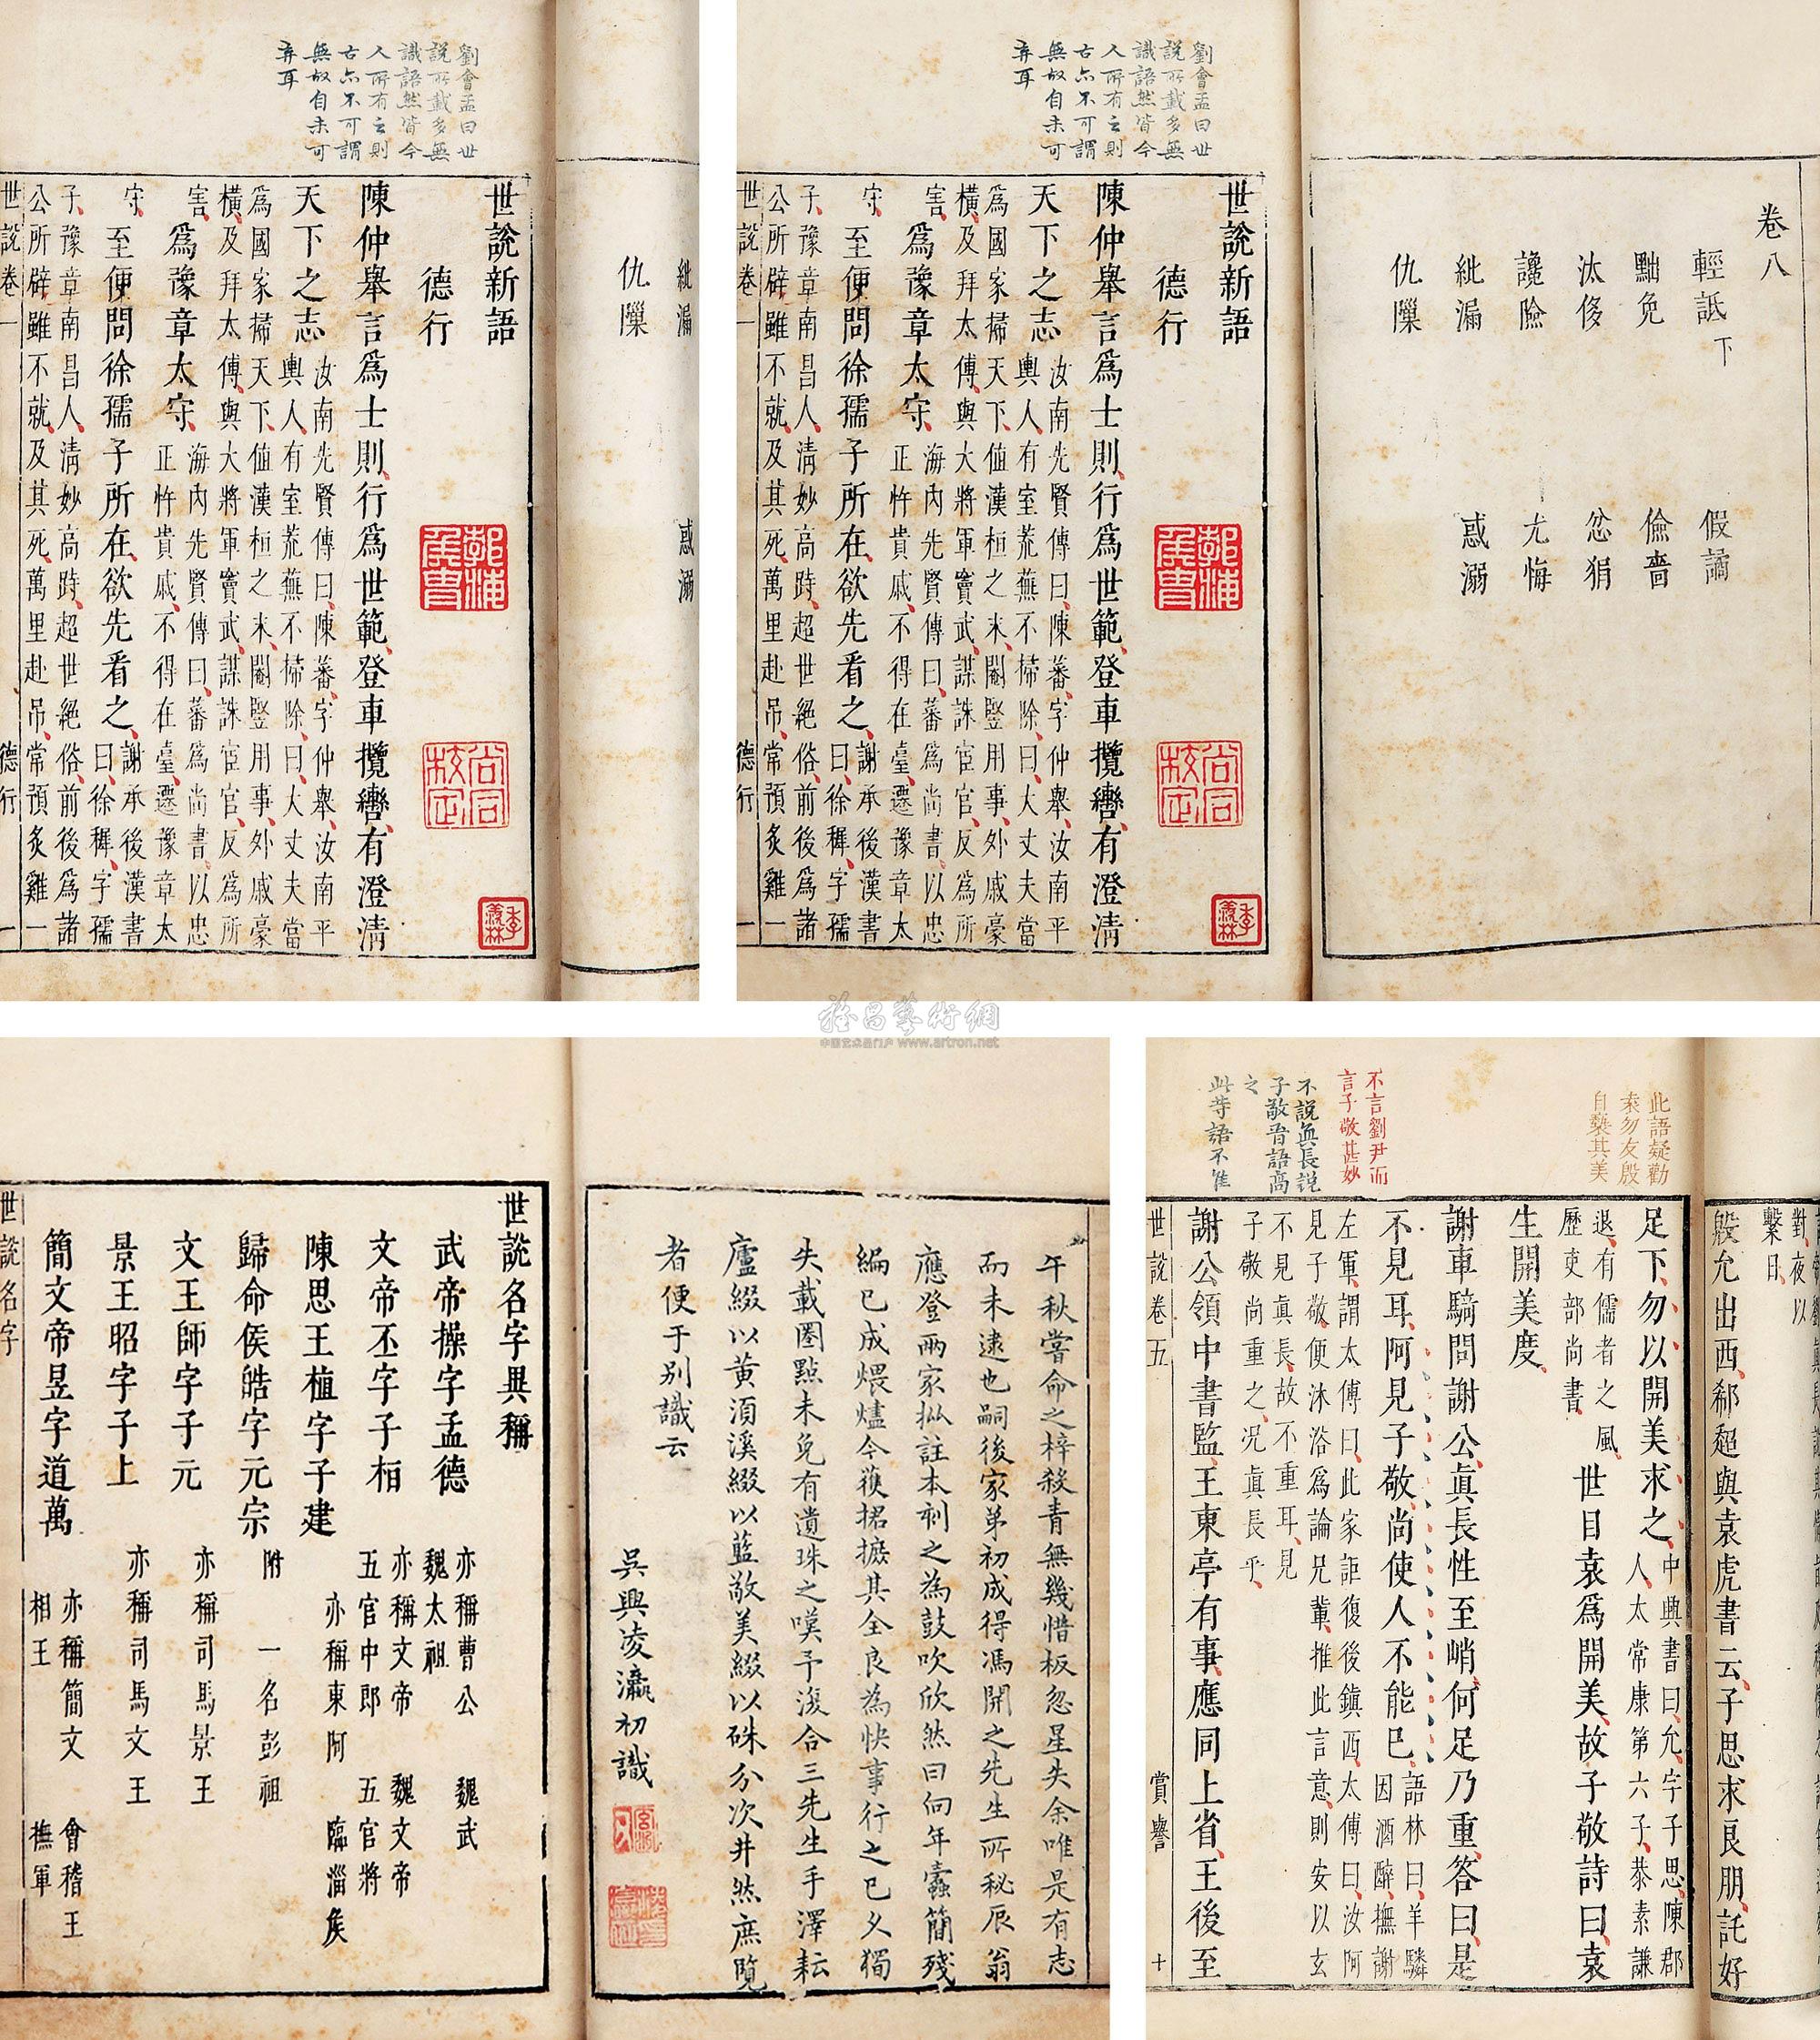 劉會孟曰世
說所載多無
識語然皆今
人所有之則
古亦不可謂
無故自未可
弃耳
世說新語
德行
陳仲舉言爲士則行爲世範登車攬轡有澄清
天下之志
汝南先賢傳曰陳蕃字仲舉汝南平
輿人有室荒蕪不掃除曰大丈夫當
爲國家掃天下值漢桓之末閹豎用事外戚豪
橫及拜太傅與大將軍竇武謀誅宦官反爲所
害
爲豫章太守
海內先賢傳曰蕃爲尚書以忠
正忤貴戚不得在臺遷豫章太
守
至便問徐孺子所在欲先看之
謝承後漢書
曰徐穉字孺
子豫章南昌人清妙高跱超世絕俗前後爲諸
公所辟雖不就及其死萬里赴吊常預炙雞一
世說卷一
德行
一
紕漏
惑溺
仇隟
卷八
輕詆下
假譎
黜免
儉嗇
汰侈
忿狷
讒險
尤悔
紕漏
惑溺
仇隟
劉會孟曰世
說所載多無
識語然皆今
人所有之則
古亦不可謂
無故自未可
弃耳
世說新語
德行
陳仲舉言爲士則行爲世範登車攬轡有澄清
天下之志
汝南先賢傳曰陳蕃字仲舉汝南平
輿人有室荒蕪不掃除曰大丈夫當
爲國家掃天下值漢桓之末閹豎用事外戚豪
橫及拜太傅與大將軍竇武謀誅宦官反爲所
害
爲豫章太守
海內先賢傳曰蕃爲尚書以忠
正忤貴戚不得在臺遷豫章太
守
至便問徐孺子所在欲先看之
謝承後漢書
曰徐穉字孺
子豫章南昌人清妙高跱超世絕俗前後爲諸
公所辟雖不就及其死萬里赴吊常預炙雞一
世說卷一
德行
一
雅昌藝術網
中国艺术品门户 www.artron.net
午秋嘗命之梓殺青無幾惜板忽星失余唯是有志
而未逮也嗣後家弟初成得馮開之先生所秘辰翁
應登兩家批註本刻之為鼓吹欣然曰向年蠹簡殘
編已成煨燼今獲捃摭其全良為快事行之已久獨
失載圈點未免有遺珠之嘆予復合三先生手澤耘
廬綴以黃須溪綴以藍敬美綴以硃分次井然庶覽
者便于別識云
吳興凌瀛初識
世說名字異稱
武帝操字孟德
亦稱曹公 魏武
魏太祖
文帝丕字子桓
亦稱文帝 魏文帝
五官中郎 五官將
陳思王植字子建
亦稱東阿 臨淄矦
歸命矦皓字元宗
附 一名彭祖
文王師字子元
亦稱司馬景王
景王昭字子上
亦稱司馬文王
簡文帝昱字道萬
亦稱簡文 會稽王
相王 撫軍
世說名字
對夜以
繫日
殷允出西郗超與袁虎書云子思求良朋託好
此語疑勸
袁勿友殷
自褻其美
不言劉尹而
言子敬甚妙
不說眞長說
子敬晋語高
之
此等語不隹
足下勿以開美求之
中興書曰允字子思陳郡
人太常康第六子恭素謙
退有儒者之風
歷吏部尚書
世目袁爲開美故子敬詩曰袁
生開美度
謝車騎問謝公眞長性至峭何足乃重答曰是
不見耳阿見子敬尚使人不能已
語林曰羊驎
因酒醉撫謝
左軍謂太傅曰此家詎復後鎮西太傅曰汝阿
見子敬便沐浴爲論兄輩推此言意則安以玄
不見眞長故不重耳見
子敬尚重之况眞長乎
謝公領中書監王東亭有事應同上省王後至
世說卷五
賞譽
十